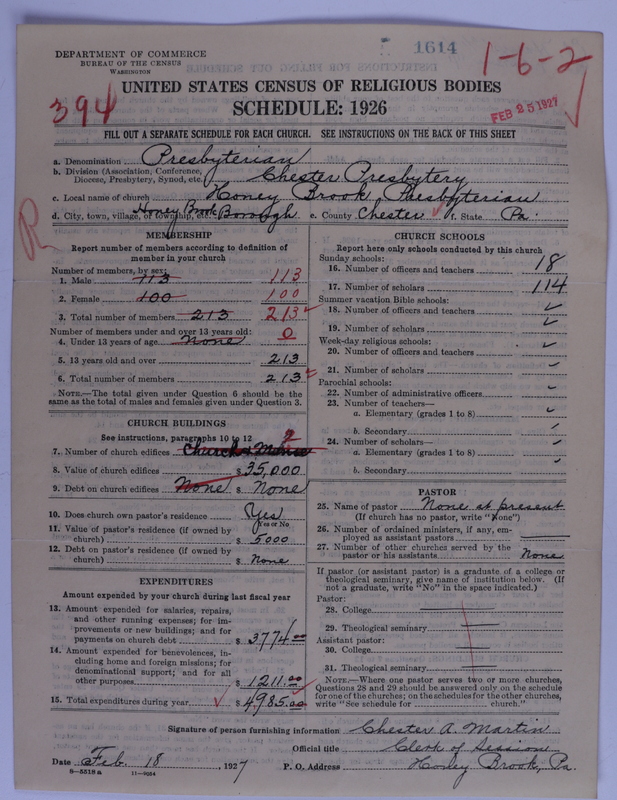 1614
1-6-2
DEPARTMENT OF COMMERCE
BUREAU OF THE CENSUS
WASHINGTON
394
UNITED STATES CENSUS OF RELIGIOUS BODIES
SCHEDULE: 1926
FEB 25 1927
FILL OUT A SEPARATE SCHEDULE FOR EACH CHURCH. SEE INSTRUCTIONS ON THE BACK OF THIS SHEET
a. Denomination Presbyterian
b. Division (Association, Conference, Diocese, Presbytery, Synod, etc.) Chester Presbytery
c. Local name of church Honey Brook Presbyterian
d. City, town, village, or township, etc. Honey Brook Borough e. County Chester f. State Pa.
R
MEMBERSHIP
Report number of members according to definition of
member in your church
Number of members, by sex:
1. Male 113 113
2. Female 100 100
3. Total number of members 213 213
Number of members under and over 13 years old:
4. Under 13 years of age None 0
5. 13 years old and over 213
6. Total number of members 213
NOTE.—The total given under Question 6 should be
same as the total of males and females given under Question 3.
CHURCH BUILDINGS
See instructions, paragraphs 10 to 12
7. Number of church edifices Church & Manse 2
8. Value of church edifices $ 35,000
9. Debt on church edifices None $ None
10. Does church own pastor's residence Yes
(Yes or No)
11. Value of pastor's residence (if owned by
church) $ 5000
12. Debt on pastor's residence (if owned by
church) $ None
EXPENDITURES
Amount expended by your church during last fiscal year
13. Amount expended for salaries, repairs,
and other running expenses; for im-
provements or new buildings; and for
payments on church debt $ 3774.00
14. Amount expended for benevolences, in-
cluding home and foreign missions; for
denominational support; and for all
other purposes $ 1211.00
15. Total expenditures during year $ 4985.00
CHURCH SCHOOLS
Report here only schools conducted by this church
Sunday schools:
16. Number of officers and teachers 18
17. Number of scholars 114
Summer vacation Bible schools:
18. Number of officers and teachers
19. Number of scholars
Week-day religious schools:
20. Number of officers and teachers
21. Number of scholars
Parochial schools:
22. Number of administrative officers
23. Number of teachers—
a. Elementary (grades 1 to 8)
b. Secondary
24. Number of scholars—
a. Elementary (grades 1 to 8)
b. Secondary
PASTOR
25. Name of pastor None at present
(If church has no pastor, write "None")
26. Number of ordained ministers, if any, em-
ployed as assistant pastors
27. Number of other churches served by the
pastor or his assistants None
If pastor (or assistant pastor) is a graduate of a college or
theological seminary, give name of institution below. (If
not a graduate, write "No" in the space indicated.)
Pastor:
28. College
29. Theological seminary
Assistant pastor:
30. College
31. Theological seminary
NOTE.—Where one pastor serves two or more churches,
Questions 28 and 29 should be answered only on the schedule
for one of the churches; on the schedules for the other churches,
write "See schedule for church."
Signature of person furnishing information Chester A. Martin
Official title Clerk of Session
Date Feb. 18, 1927 P. O. Address Honey Brook, Pa.
8—5518a 11—9054